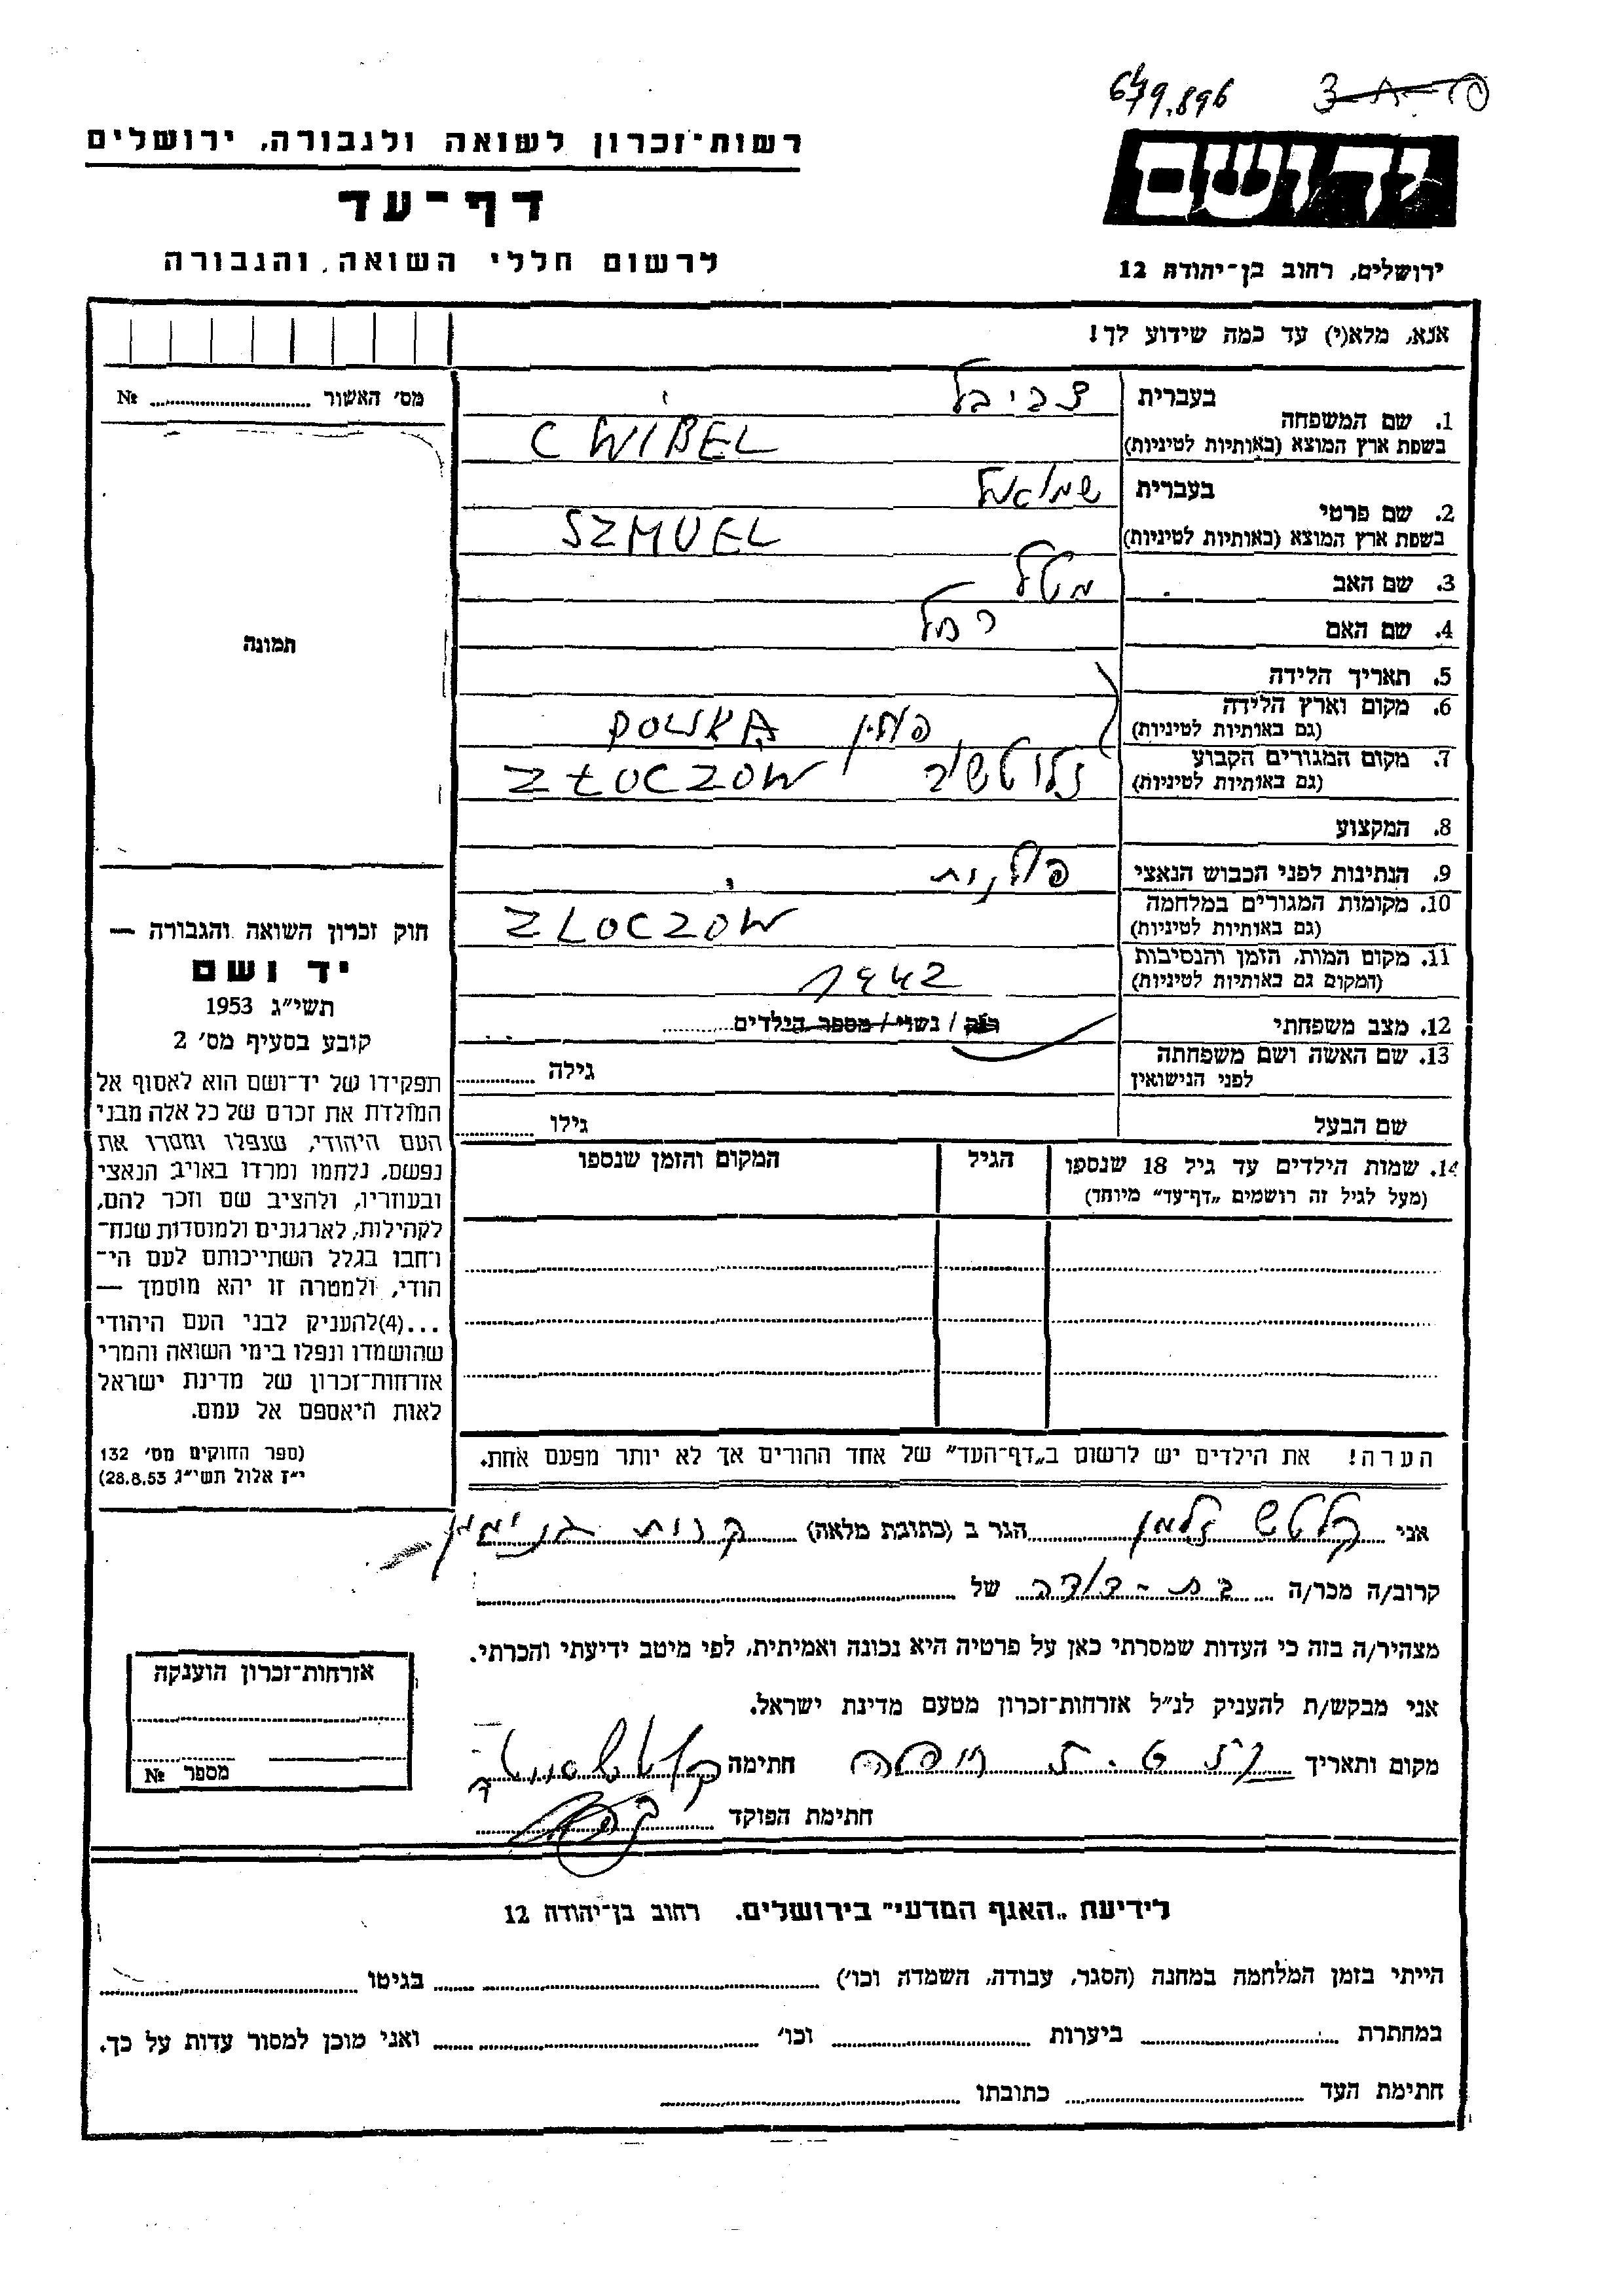 679.896
ידושם
רשות־זכרון לשואה ולגבורה, ירושלים
דף־עד
לרשום חללי השואה והגבורה
ירושלים, רחוב בן־יהודה 12
אנא, מלא(י) עד כמה שידוע לך!
מס׳ האשור № 
תמונה
1. שם המשפחה
בעברית צביבל
בשפת ארץ המוצא (באותיות לטיניות) CWIBEL
2. שם פרטי
בעברית שמואל
בשפת ארץ המוצא (באותיות לטיניות) SZMUEL
3. שם האב מטל
4. שם האם רחל
5. תאריך הלידה
6. מקום וארץ הלידה
(גם באותיות לטיניות) פולין POLSKA
7. מקום המגורים הקבוע
(גם באותיות לטיניות) זלוטשוב ZŁOCZOW
8. המקצוע
9. הנתינות לפני הכבוש הנאצי פולנית
10. מקומות המגורים במלחמה
(גם באותיות לטיניות) ZLOCZOW
11. מקום המות, הזמן והנסיבות
(המקום גם באותיות לטיניות) 1942
12. מצב משפחתי רוק / נשוי / מספר הילדים
13. שם האשה ושם משפחתה
לפני הנישואין גילה
שם הבעל גילו
14. שמות הילדים עד גיל 18 שנספו הגיל המקום והזמן שנספו
(מעל לגיל זה רושמים „דף־עד״ מיוחד)
הערה! את הילדים יש לרשום ב„דף־העד״ של אחד ההורים אך לא יותר מפעם אחת.
חוק זכרון השואה והגבורה —
יד ושם
תשי״ג 1953
קובע בסעיף מס׳ 2
תפקידו של יד־ושם הוא לאסוף אל
המולדת את זכרם של כל אלה מבני
העם היהודי, שנפלו ומסרו את
נפשם, נלחמו ומרדו באויב הנאצי
ובעוזריו, ולהציב שם וזכר להם,
לקהילות, לארגונים ולמוסדות שנח־
רחבו בגלל השתייכותם לעם הי־
הודי, ולמטרה זו יהא מוסמך —
...(4)להעניק לבני העם היהודי
שהושמדו ונפלו בימי השואה והמרי
אזרחות־זכרון של מדינת ישראל
לאות היאספם אל עמם.
(ספר החוקים מס׳ 132
י״ז אלול תשי״ג 28.8.53)
אני קלטש זלמן הגר ב (כתובת מלאה) קרית בנימין
קרוב/ה מכר/ה בת-דודה של
מצהיר/ה בזה כי העדות שמסרתי כאן על פרטיה היא נכונה ואמיתית, לפי מיטב ידיעתי והכרתי.
אני מבקש/ת להעניק לנ״ל אזרחות־זכרון מטעם מדינת ישראל.
מקום ותאריך חתימה
חתימת הפוקד
אזרחות־זכרון הוענקה
מספר №
לידיעת „האגף המדעי״ בירושלים. רחוב בן־יהודה 12
הייתי בזמן המלחמה במחנה (הסגר, עבודה, השמדה וכו׳) בגיטו
במחתרת ביערות וכו׳ ואני מוכן למסור עדות על כך.
חתימת העד כתובתו